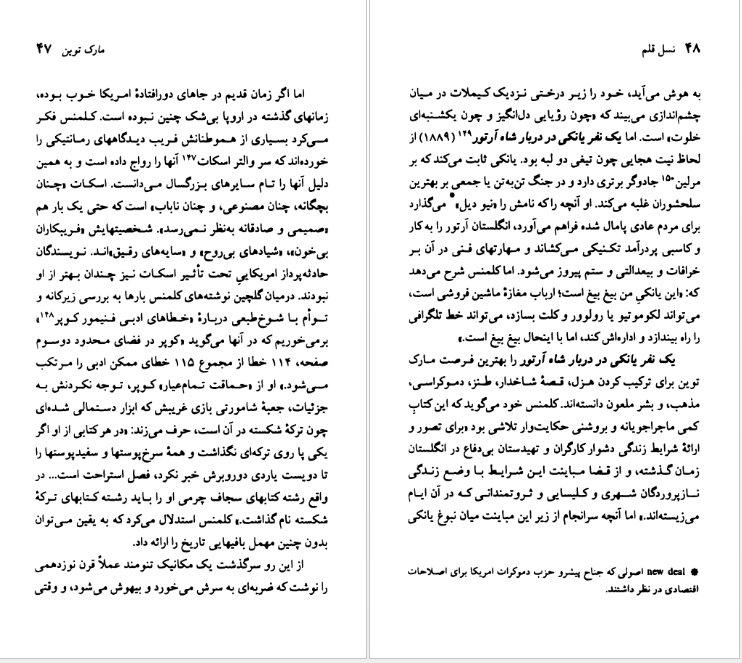 مارک توین ۴۷
اما اگر زمان قدیم در جاهای دورافتادهٔ امریکا خوب بوده،
زمانهای گذشته در اروپا بی‌شک چنین نبوده است. کلمنس فکر
می‌کرد بسیاری از هموطنانش فریب دیدگاههای رمانتیکی را
خورده‌اند که سر والتر اسکات۱۴۷ آنها را رواج داده است و به همین
دلیل آنها را تام سایرهای بزرگسال می‌دانست. اسکات «چنان
بچگانه، چنان مصنوعی، و چنان ناباب» است که حتی یک بار هم
«صمیمی و صادقانه به‌نظر نمی‌رسد». شخصیتهایش «فریبکاران
بی‌خون»، «شیادهای بی‌روح» و «سایه‌های رقیق»‌اند. نویسندگان
حادثه‌پرداز امریکایی تحت تأثیر اسکات نیز چندان بهتر از او
نبودند. درمیان گلچین نوشته‌های کلمنس بارها به بررسی زیرکانه و
توأم با شوخ‌طبعی دربارهٔ «خطاهای ادبی فنیمور کوپر۱۴۸»
برمی‌خوریم که در آنها می‌گوید «کوپر در فضای محدود دوسوم
صفحه، ۱۱۴ خطا از مجموع ۱۱۵ خطای ممکن ادبی را مرتکب
می‌شود.» او از «حماقت تمام‌عیار» کوپر، توجه نکردنش به
جزئیات، جعبهٔ شامورتی بازی غریبش که ابزار دستمالی شده‌ای
چون ترکهٔ شکسته در آن است، حرف می‌زند: «در هر کتابی از او اگر
یکی پا روی ترکه‌ای نگذاشت و همهٔ سرخ‌پوستها و سفیدپوستها را
تا دویست یاردی دوروبرش خبر نکرد، فصل استراحت است... در
واقع رشته کتابهای سجاف چرمی او را باید رشته کتابهای ترکهٔ
شکسته نام گذاشت.» کلمنس استدلال می‌کرد که به یقین می‌توان
بدون چنین مهمل بافیهایی تاریخ را ارائه داد.
از این رو سرگذشت یک مکانیک تنومند عملاً قرن نوزدهمی
را نوشت که ضربه‌ای به سرش می‌خورد و بیهوش می‌شود، و وقتی
۴۸ نسل قلم
به هوش می‌آید، خود را زیر درختی نزدیک کیملات در میان
چشم‌اندازی می‌بیند که «چون رؤیایی دل‌انگیز و چون یکشنبه‌ای
خلوت» است. اما یک نفر یانکی در دربار شاه آرتور۱۴۹ (۱۸۸۹) از
لحاظ نیت هجایی چون تیغی دو لبه بود. یانکی ثابت می‌کند که بر
مرلین۱۵۰ جادوگر برتری دارد و در جنگ تن‌به‌تن یا جمعی بر بهترین
سلحشوران غلبه می‌کند. او آنچه را که نامش را «نیو دیل»* می‌گذارد
برای مردم عادی پامال شده فراهم می‌آورد، انگلستان آرتور را به کار
و کاسبی پردرآمد تکنیکی می‌کشاند و مهارتهای فنی در آن بر
خرافات و بیعدالتی و ستم پیروز می‌شود. اما کلمنس شرح می‌دهد
که: «این یانکیِ من بیغ بیغ است؛ ارباب مغازهٔ ماشین فروشی است،
می‌تواند لکوموتیو یا رولوور و کلت بسازد، می‌تواند خط تلگرافی
را راه بیندازد و اداره‌اش کند، اما با اینحال بیغ بیغ است.»
یک نفر یانکی در دربار شاه آرتور را بهترین فرصت مارک
توین برای ترکیب کردن هزل، قصهٔ شاخدار، طنز، دموکراسی،
مذهب، و بشر ملعون دانسته‌اند. کلمنس خود می‌گوید که این کتابِ
کمی ماجراجویانه و بروشنی حکایت‌وار تلاشی بود «برای تصور و
ارائهٔ شرایط زندگی دشوار کارگران و تهیدستان بی‌دفاع در انگلستان
زمان گذشته، و از قضا مباینت این شرایط با وضع زندگی
نازپروردگان شهری و کلیسایی و ثروتمندانی که در آن ایام
می‌زیسته‌اند.» اما آنچه سرانجام از زیر این مباینت میان نبوغ یانکی
* new deal اصولی که جناح پیشرو حزب دموکرات امریکا برای اصلاحات
اقتصادی در نظر داشتند.